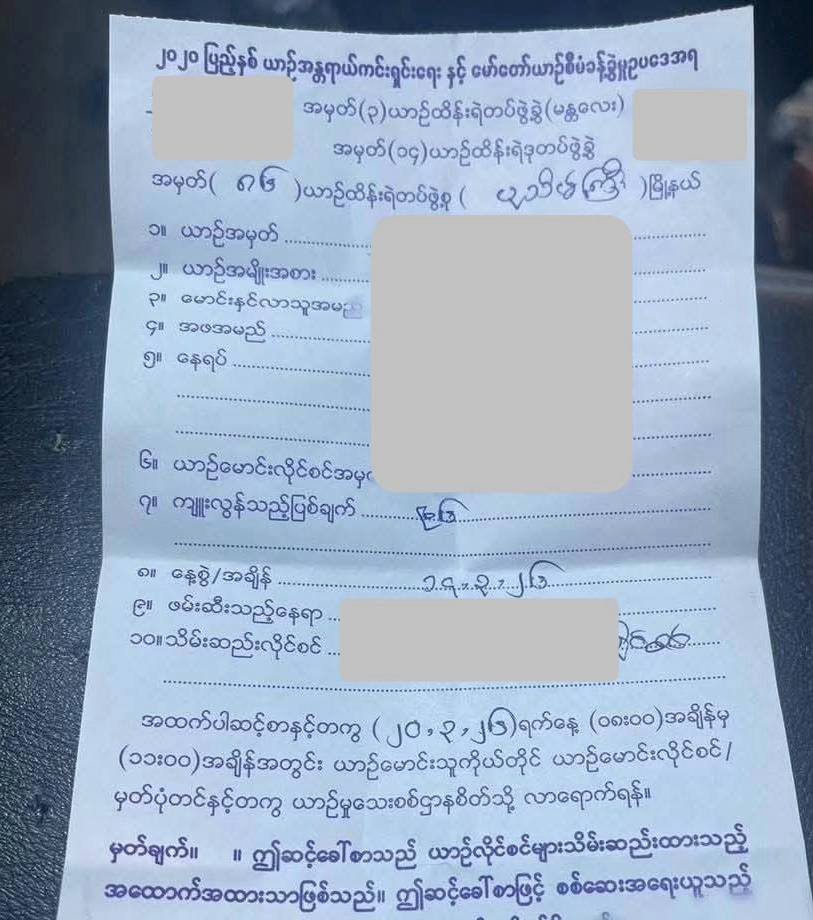 ၂၀၂၀ ပြည့်နှစ် ယာဉ်အန္တရာယ်ကင်းရှင်းရေး နှင့် မော်တော်ယာဉ်စီမံခန့်ခွဲမှုဥပဒေအရ
အမှတ်(၃)ယာဉ်ထိန်းရဲတပ်ဖွဲ့ခွဲ(မန္တလေး)
အမှတ်(၁၄)ယာဉ်ထိန်းရဲဒုတပ်ဖွဲ့ခွဲ
အမှတ်( ၈၆ )ယာဉ်ထိန်းရဲတပ်ဖွဲ့စု ( ပုသိမ်ကြီး )မြို့နယ်
၁။ ယာဉ်အမှတ်
၂။ ယာဉ်အမျိုးအစား
၃။ မောင်းနှင်လာသူအမည
၄။ အဖအမည်
၅။ နေရပ်
၆။ ယာဉ်မောင်းလိုင်စင်အမှ
၇။ ကျူးလွန်သည့်ပြစ်ချက်
၈။ နေ့စွဲ/အချိန် ၁၇.၃.၂၆
၉။ ဖမ်းဆီးသည့်နေရာ
၁၀။သိမ်းဆည်းလိုင်စင်
အထက်ပါဆင့်စာနှင့်တကွ (၂၀,၃,၂၆)ရက်နေ့ (၀၈:၀၀)အချိန်မှ
(၁၁:၀၀)အချိန်အတွင်း ယာဉ်မောင်းသူကိုယ်တိုင် ယာဉ်မောင်းလိုင်စင်/
မှတ်ပုံတင်နှင့်တကွ ယာဉ်မှုသေးစစ်ဌာနစိတ်သို့ လာရောက်ရန်။
မှတ်ချက်။ ။ ဤဆင့်ခေါ်စာသည် ယာဉ်လိုင်စင်များသိမ်းဆည်းထားသည့်
အထောက်အထားသာဖြစ်သည်။ ဤဆင့်ခေါ်စာဖြင့် စစ်ဆေးအရေးယူသည့်